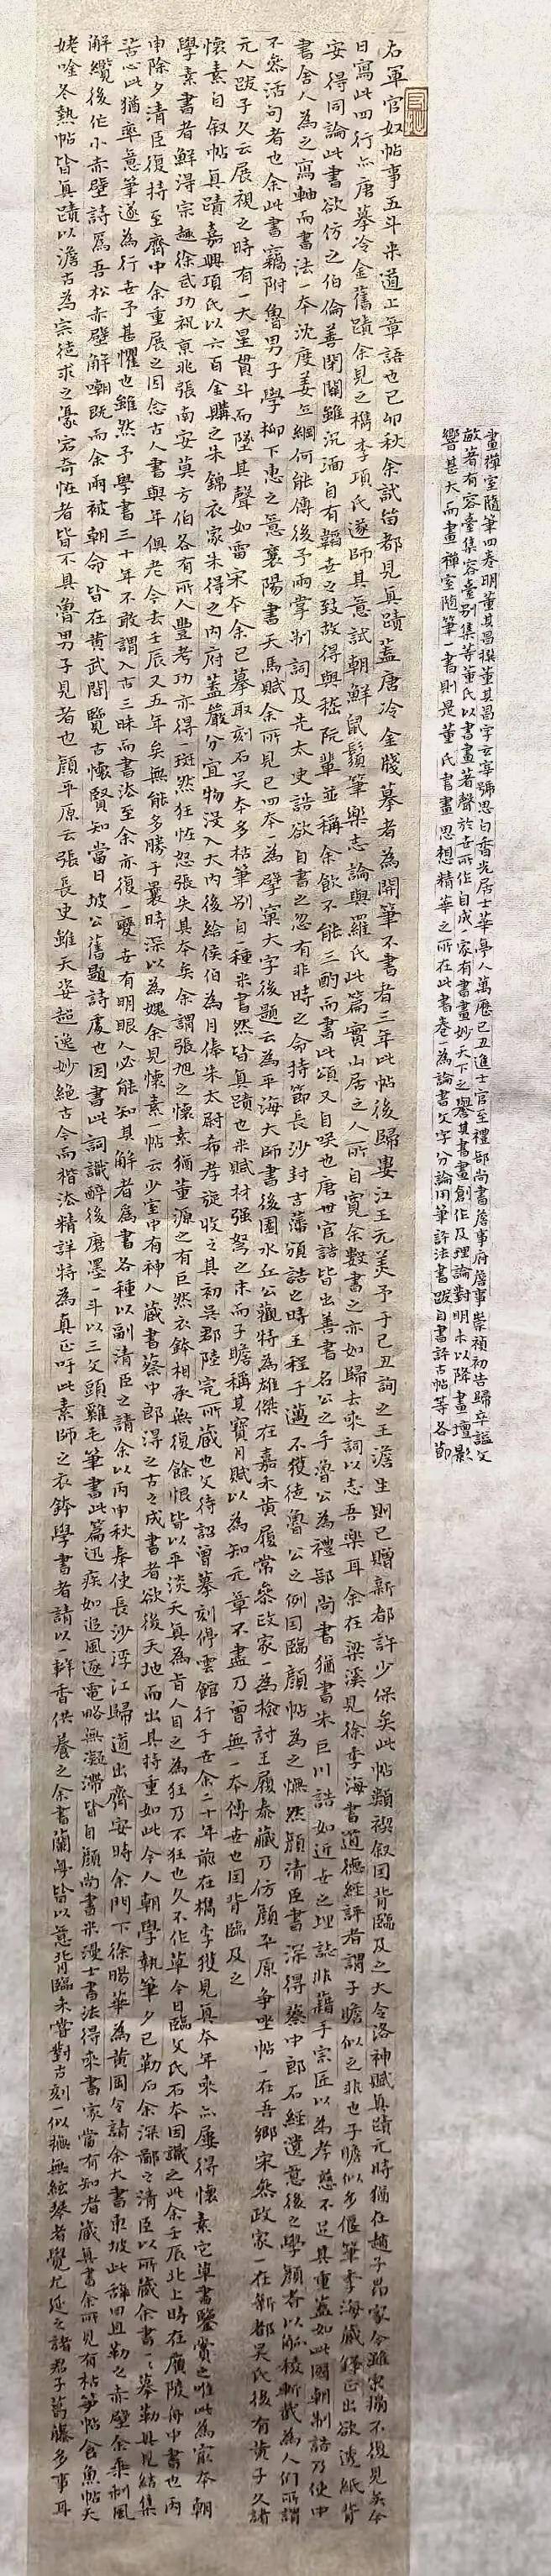 畫禪室隨筆四卷明董其昌撰董其昌字玄宰號思白香光居士華亭人萬歷己丑進士官至禮部尚書詹事府詹事崇禎初告歸卒謚文
敏著有容臺集容臺別集等董氏以書畫著聲於世所作自成一家有書畫妙天下之譽其書畫創作及理論對明末以降畫壇影
響甚大而畫禪室隨筆一書則是董氏書畫思想精華之所在此書卷一為論書文字分論用筆評法書跋自書評古帖等各節
右軍官奴帖事五斗米道上章語也己卯秋余試留都見真蹟蓋唐冷金牋摹者為閣筆不書者三年此帖後歸婁江王元美予于己丑詢之王澹生則已贈新都許少保矣此帖類禊敘因背臨及之大令洛神賦真蹟元時猶在趙子昂家今雖宋搨不復見矣今
日寫此四行亦唐摹冷金舊蹟余見之檇李項氏遂師其意試朝鮮鼠鬚筆樂志論與羅氏此篇實山居之人所自寬余數書之亦如歸去來詞以志吾樂耳余在梁溪見徐季海書道德經評者謂子瞻似之非也子瞻似多偃筆季海藏鋒正出欲透紙背
安得同論此書欲仿之伯倫善閉關雖沉湎自有韜世之致故得與嵇阮輩並稱余飲不能三酌而書此頌又自咲也唐世官誥皆出善書名公之手魯公為禮部尚書猶書朱巨川誥如近世之埋誌非藉手宗匠以為孝慈不足其重蓋如此國朝制誥乃使中
書舍人為之寫軸而書法一本沈度姜立綱何能傳後予兩掌制詞及先太史誥欲自書之忽有非時之命持節長沙封吉藩頒誥之時王程于邁不獲徒魯公之例因臨顏帖為之憮然顏清臣書深得蔡中郎石經遺意後之學顏者以觚稜斬截為入門所謂
不參活句者也余此書竊附魯男子學柳下惠之意襄陽書天馬賦余所見已四本為擘窠大字後題云為平海大師書後園水丘公觀特為雄傑在嘉禾黃履常參政家一為檢討王履泰藏乃仿顏平原爭坐帖一在吾鄉宋參政家一在新都吳氏後有黃子久諸
元人跋子久云展視之時有一大星貫斗而墜其聲如雷宋本余已摹取刻石吳本多枯筆別自一種米書然皆真蹟也米賦材强弩之末而子瞻稱其寶月賦以為知元章不盡乃曾無一本傳世也因背臨及之
懷素自叙帖真蹟嘉興項氏以六百金購之朱錦衣家朱得之內府蓋嚴分宜物沒入大內後給侯伯為月俸朱太尉希孝旋收之其初吳郡陸完所藏也文待詔曾摹刻停雲館行于世余二十年前在檇李獲見真本年來亦屢得懷素它草書鑒賞之唯此為最本朝
學素書者鮮得宗趣徐武功祝京兆張南安莫方伯各有所入豐考功亦得一斑然狂怪怒張失其本矣余謂張旭之懷素猶董源之有巨然衣鉢相承無復餘恨皆以平淡天真為旨人目之為狂乃不狂也久不作草今日臨文氏石本因識之此余壬辰北上時在廣陵舟中書也丙
申除夕清臣復持至齋中余重展之因念古人書與年俱老今去壬辰又五年矣無能多勝于曩時深以為媿余見懷素一帖云少室中有神人藏書蔡中郎得之古之成書者欲後天地而出其持重如此今人朝學執筆夕已勒石余深鄙之清臣以所藏余書一一摹勒具見結集
苦心此猶率意筆遂為行世予甚懼也雖然予學書三十年不敢謂入古三昧而書法至余亦復一變世有明眼人必能知其解者為書各種以副清臣之請余以丙申秋奉使長沙浮江歸道出齊安時余門下徐暘華為黃岡令請余大書東坡此辭且勒之赤壁余乘利風
解纜後作小赤壁詩為吾松赤壁解嘲既而余兩被朝命皆在黃武間覽古懷賢知當日坡公舊題詩處也因書此詞識醉後磨墨一斗以三文頭雞毛筆書此篇迅疾如追風逐電略無凝滯皆自顏尚書米漫士書法得來書家當有知者藏真書余所見有枯筍帖食魚帖天
姥唫冬熱帖皆真蹟以澹古為宗徒求之豪宕奇恠者皆不具魯男子見者也顏平原云張長史雖天姿超逸妙絕古今而楷法精詳特為真正吁此素師之衣鉢學書者請以一瓣香供養之余書蘭亭皆以意背臨未嘗對古刻一似撫無絃琴者覺尤延之諸君子葛藤多事耳